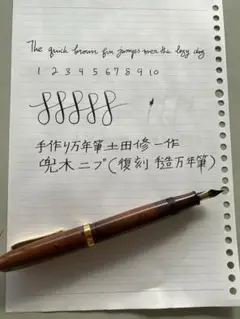 The quick brown fox jumps over the lazy dog
1 2 3 4 5 6 7 8 9 10
手作り万年筆土田修一作
兜木ニブ(復刻手造万年筆)